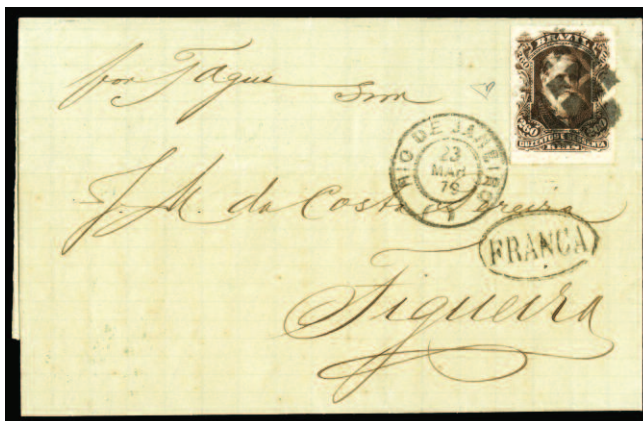 por Tagus
BRAZIL
260 260
DUZENTOS E SESSENTA
RÉIS
RIO DE JANEIRO
23
MAR
79
J. M. da Costa
FRANCA
Figueira